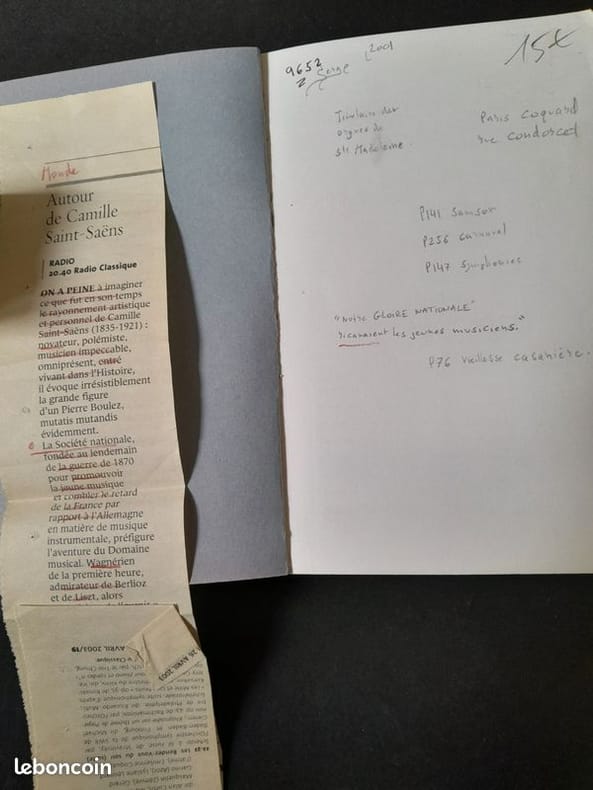 Monde
Autour
de Camille
Saint-Saëns
RADIO
20.40 Radio Classique
ON A PEINE à imaginer
ce que fut en son temps
le rayonnement artistique
et personnel de Camille
Saint-Saëns (1835-1921) :
novateur, polémiste,
musicien impeccable,
omniprésent, entré
vivant dans l'Histoire,
il évoque irrésistiblement
la grande figure
d'un Pierre Boulez,
mutatis mutandis
évidemment.
La Société nationale,
fondée au lendemain
de la guerre de 1870
pour promouvoir
la jeune musique
et combler le retard
de la France par
rapport à l'Allemagne
en matière de musique
instrumentale, préfigure
l'aventure du Domaine
musical. Wagnérien
de la première heure,
admirateur de Berlioz
et de Liszt, alors
AVRIL 2003/19
26 AVRIL 2003
9652
2001
15€
Titulaire des
orgues de
Ste Madeleine
Paris Coquard
rue Condorcet
P141 Samson
P256 Carnaval
P147 Symphonies
"Notre GLOIRE NATIONALE"
ricanaient les jeunes musiciens."
P76 Vieillesse casanière.
leboncoin